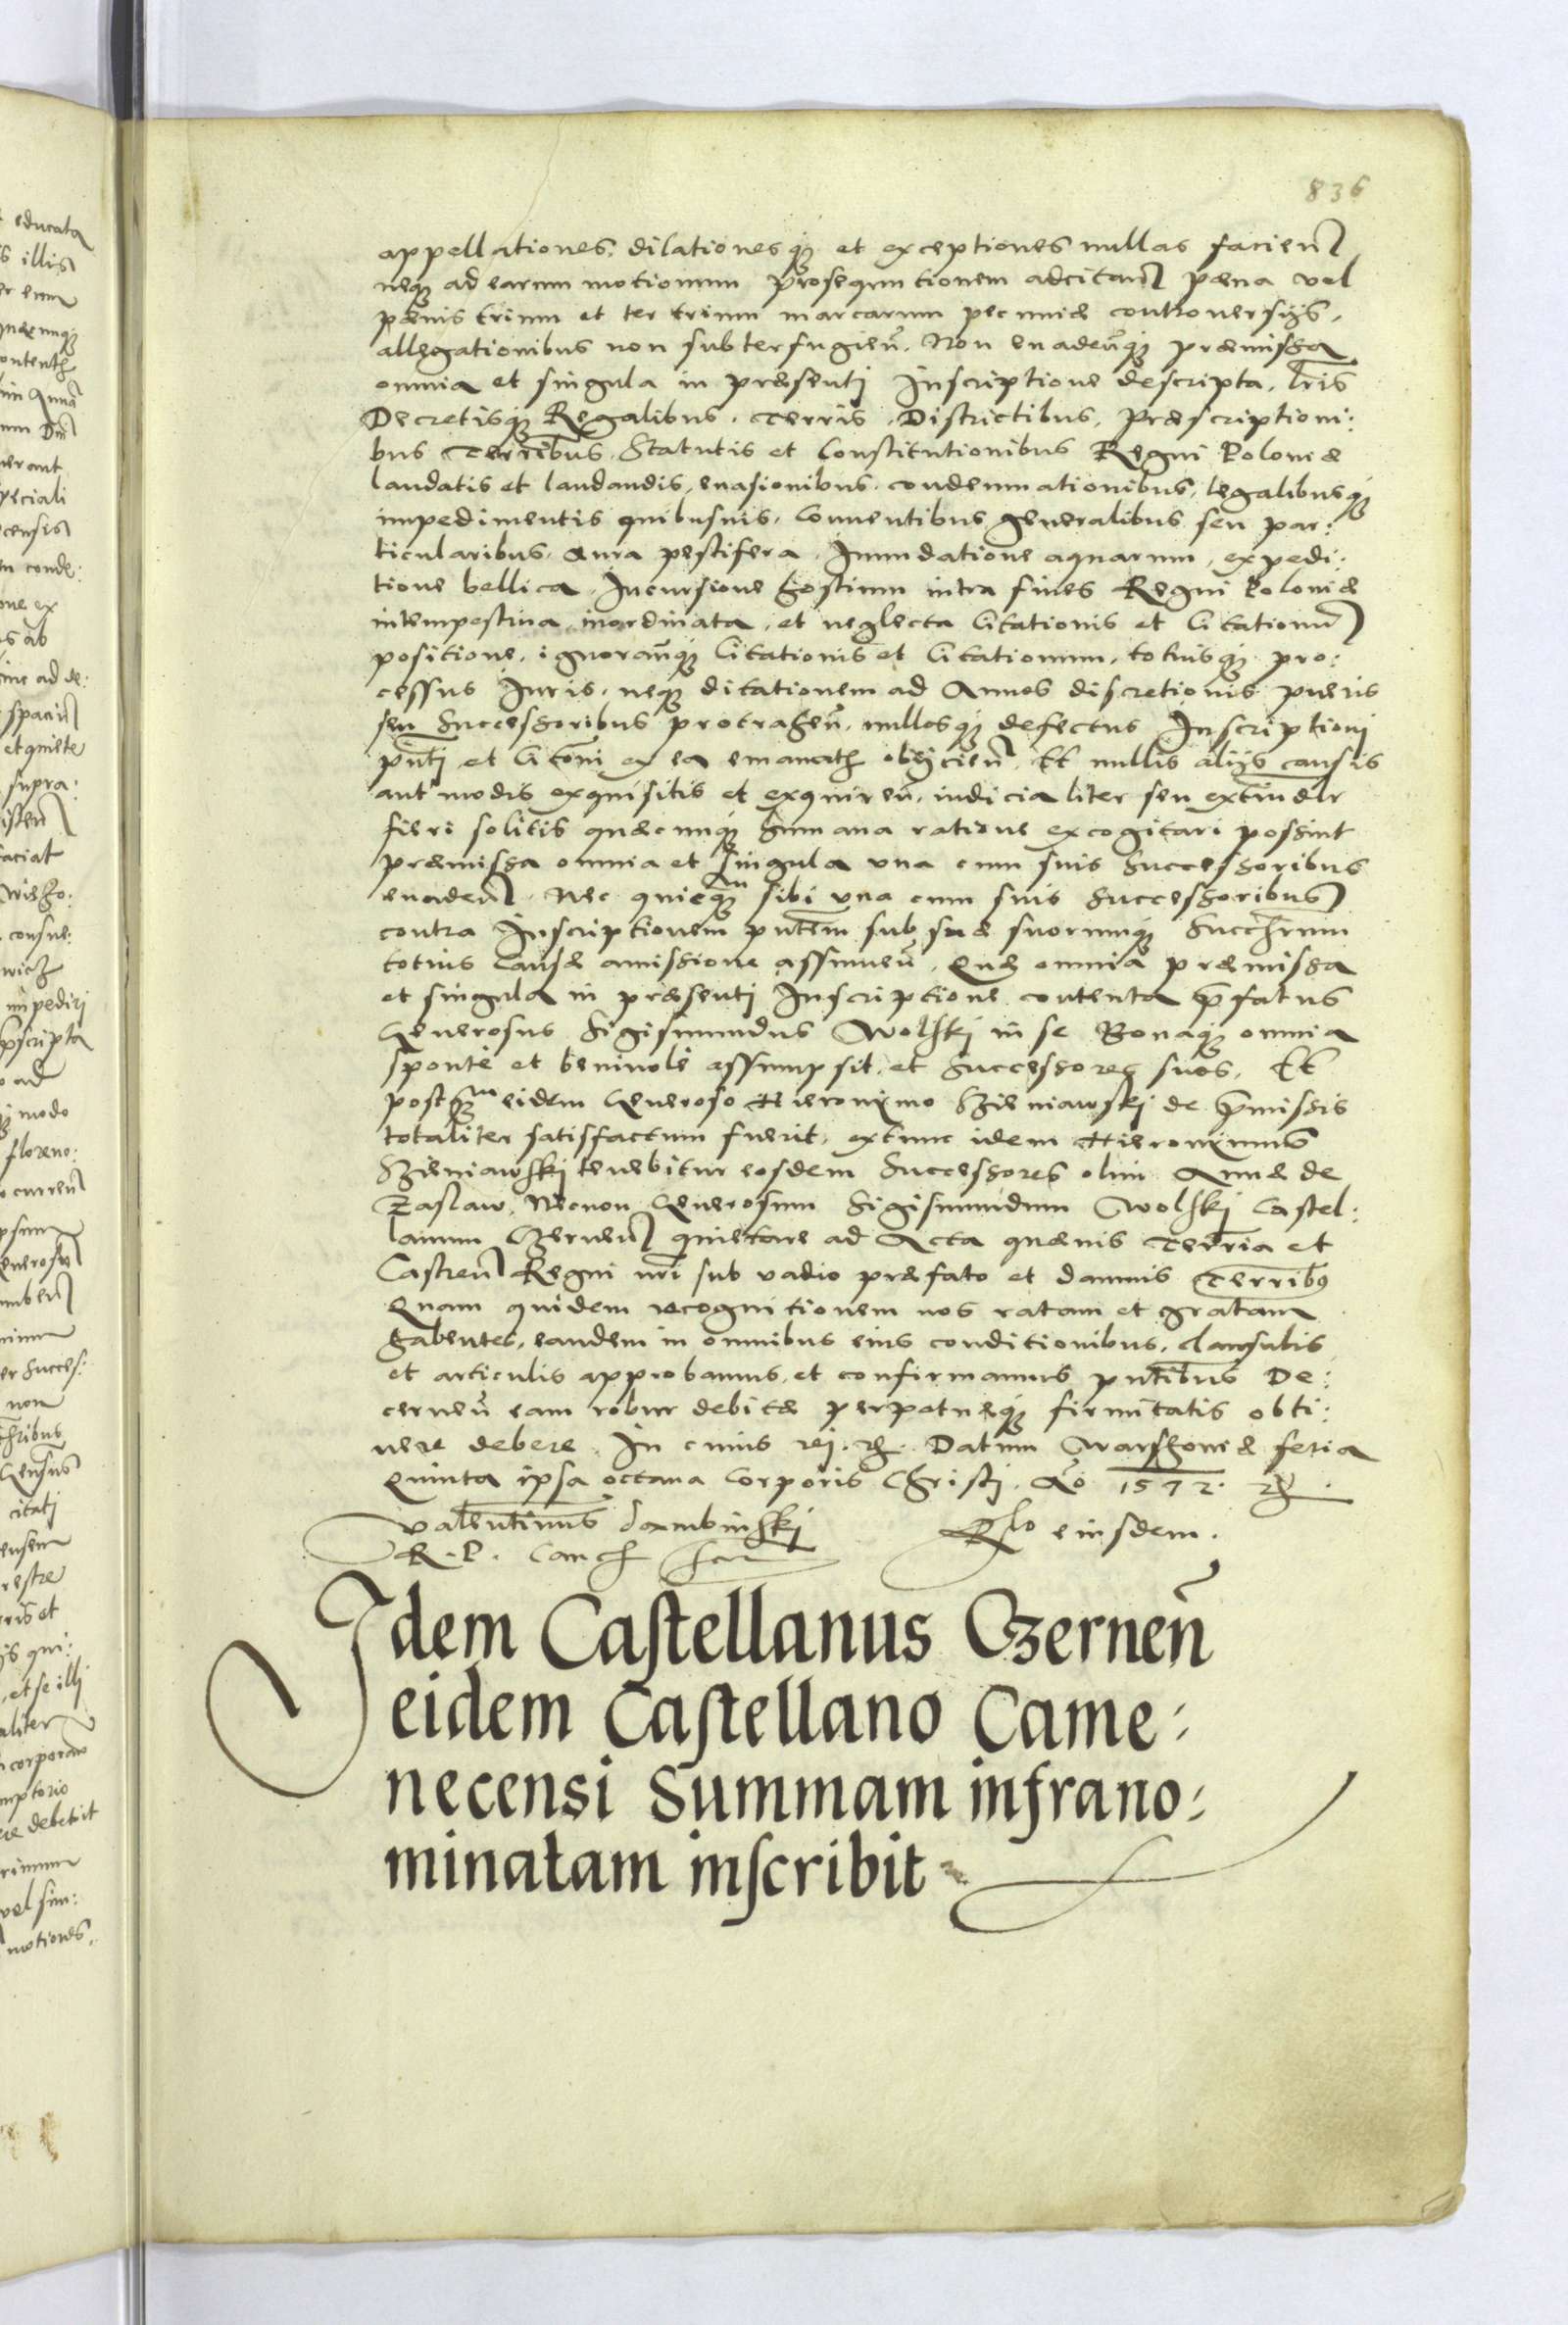 836
appellationes, dilationesq́ue et exceptiones nullas facieñ
neq́ue ad earum motionum prosequutionem adcitañ pæna vel
pænis trium et ter trium marcarum pecuniæ controversijs,
allegationibus non subterfugieñ. Non evadeñq́ue præmissa
omnia et singula in præsenti Inscriptione descripta, lris
Decretisq́ue Regalibus, Terris, Districtibus, Præscriptioni:
bus Terribus, Statutis et Constitutionibus Regni Poloniæ
laudatis et laudandis, evasionibus, condemnationibus, legalibusq́ue
impedimentis quibusvis, Conventibus generalibus seu par:
ticularibus, aura pestifera, Inundatione aquarum, expedi:
tione bellica, Incursione hostium intra fines Regni Poloniæ
intempestiva, inordinata, et neglecta Citationis et Citationũ
positione, ignorañq́ue Citationis et Citationum, totiusq́ue pro:
cessus Iuris, neq́ue ditationem ad Annos discretionis pueris
seu Successoribus protraheñ, nullosq́ue defectus Inscriptioni
pñti et Citõni ex ea emanatæ obijcieñ. Et nullis alijs causis
aut modis exquisitis et exquireñ, iudicialiter seu extraiuder
fieri solitis quæcunq́ue humana ratione excogitari possint
præmissa omnia et singula una cum suis Successoribus
evadeñ. Nec quicq́uam sibi una cum suis Successoribus
contra Inscriptionem pñtem sub suæ suorumq́ue Succhrum
totius Causæ amissione assumeñ. Quæ omnia præmissa
et singula in præsenti Inscriptione contenta p̃fatus
Generosus Sigismundus Wolski in se Bonaq́ue omnia
sponte et benivole assumpsit, et Successores suos. Et
postq́uam eidem Generoso Hieronimo Sieniawski de p̃missis
totaliter satisfactum fuerit, extunc idem Hieronimus
Sieniawski tenebitur eosdem Successores olim Annæ de
Zaslaw, Necnon Generosum Sigismundum Wolski Castel:
lanum Czerneñ quietare ad Acta quævis Terria et
Castreñ Regni nri sub vadio præfato et damnis Terribus
Quam quidem recognitionem nos ratam et gratam
habentes, eandem in omnibus eius conditionibus, clausulis
et articulis approbamus, et confirmamus pñtibus De:
cerneñ eam robur debitæ perpetuæq́ue firmitatis obti:
nere debere. In cuius rei. &. Datum Warssoviæ feria
Quinta ipsa octava Corporis Christi. Ao 1572. &.
Valentinus Dambinski
R. P. Canch
Rlo eiusdem.
Idem Castellanus Czerneñ
eidem Castellano Came:
necensi Summam infrano:
minatam inscribit